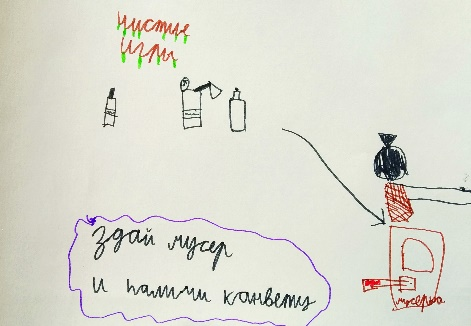 чистые
игры
здай мусер
и палучи канвету
мусерка